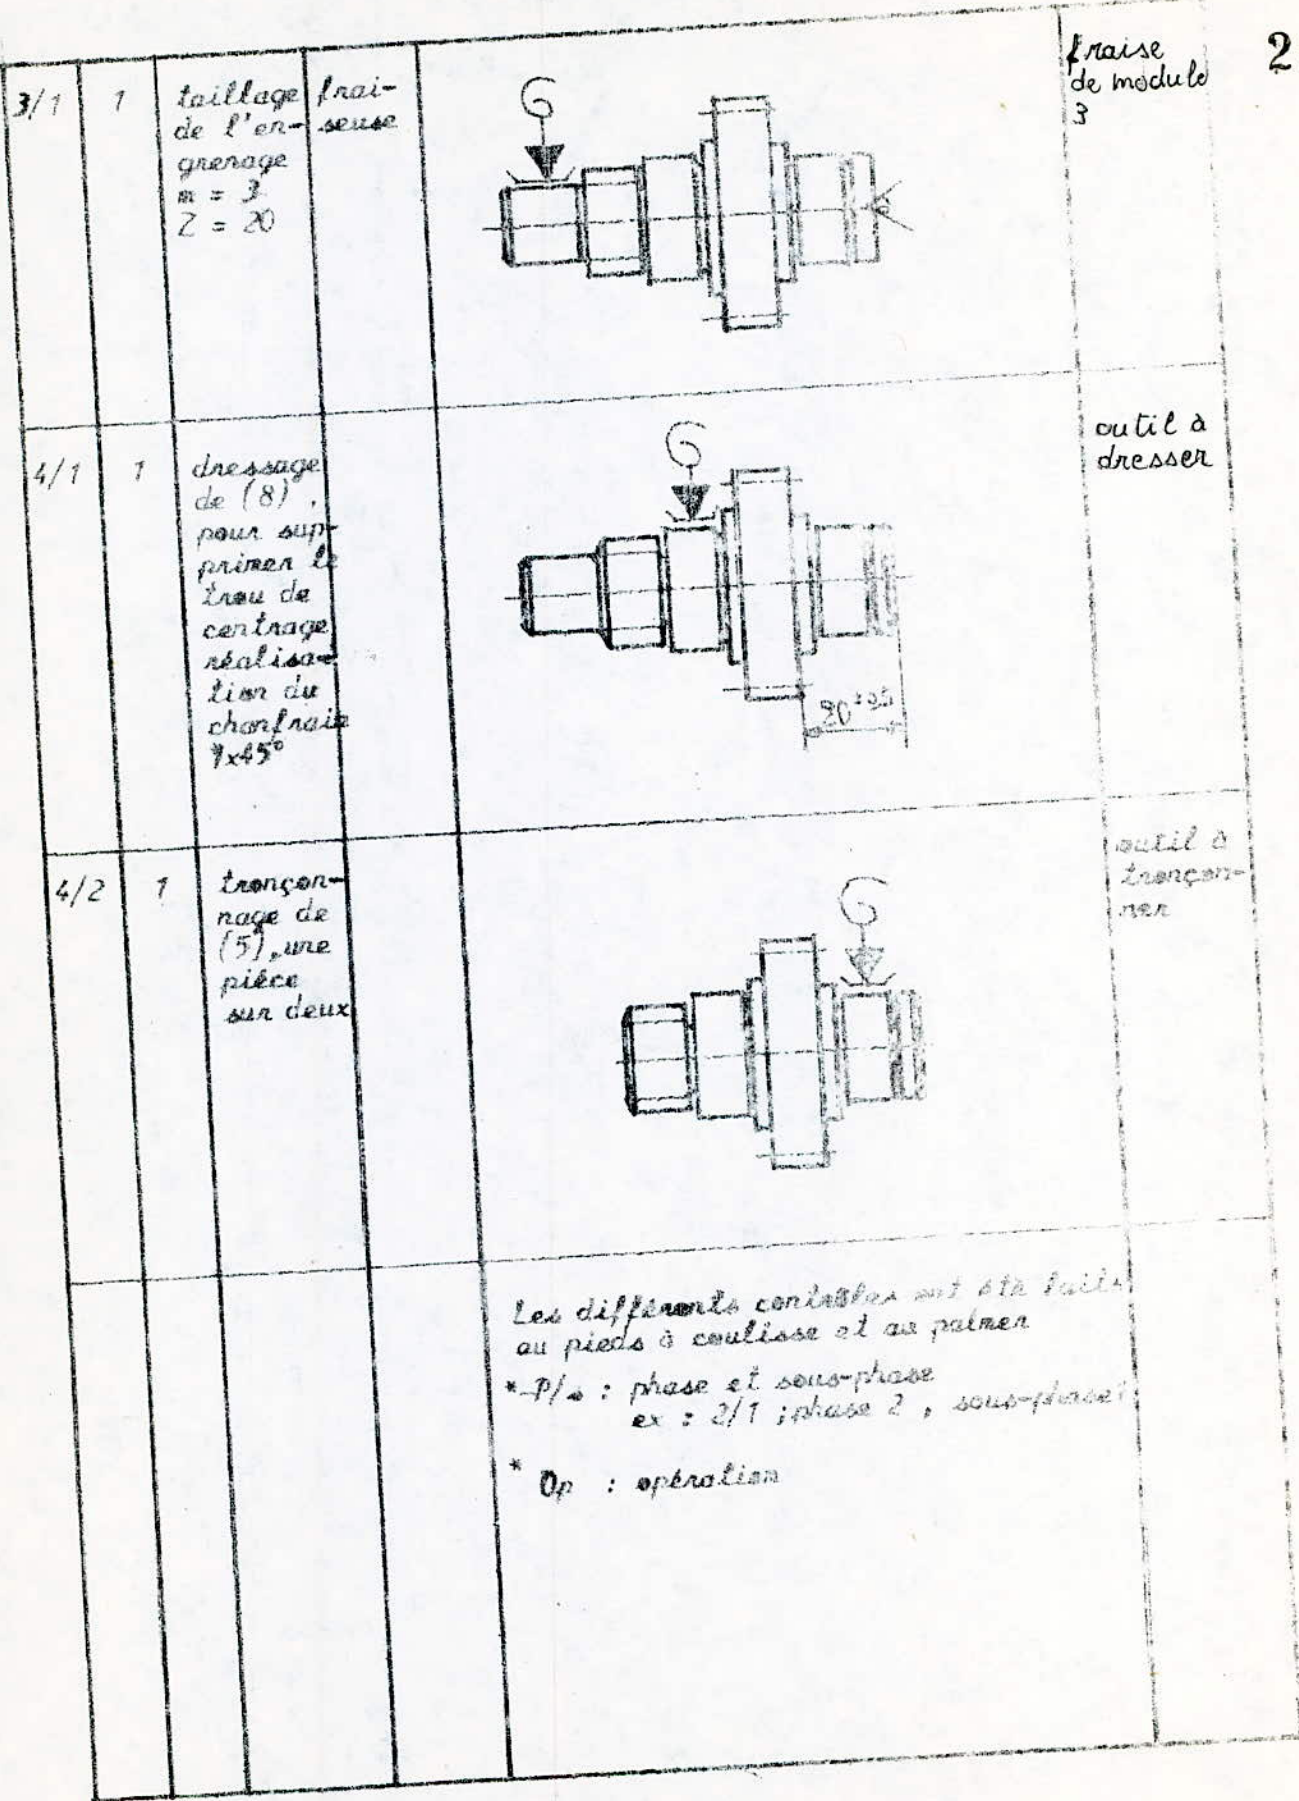 2
3/1
1
taillage
de l'en-
grenage
m = 3
Z = 20
frai-
seuse
fraise
de module
3
4/1
1
dressage
de (8) ,
pour sup-
primer le
trou de
centrage
réalisa-
tion du
chanfrain
1x45°
20
outil à
dresser
4/2
1
tronçon-
nage de
(5), une
pièce
sur deux
outil à
tronçon-
ner
Les différents contrôles ont été faits
au pieds à coulisse et au palmer
* P/s : phase et sous-phase
ex : 2/1 ; phase 2 , sous-phase 1
* Op : opération